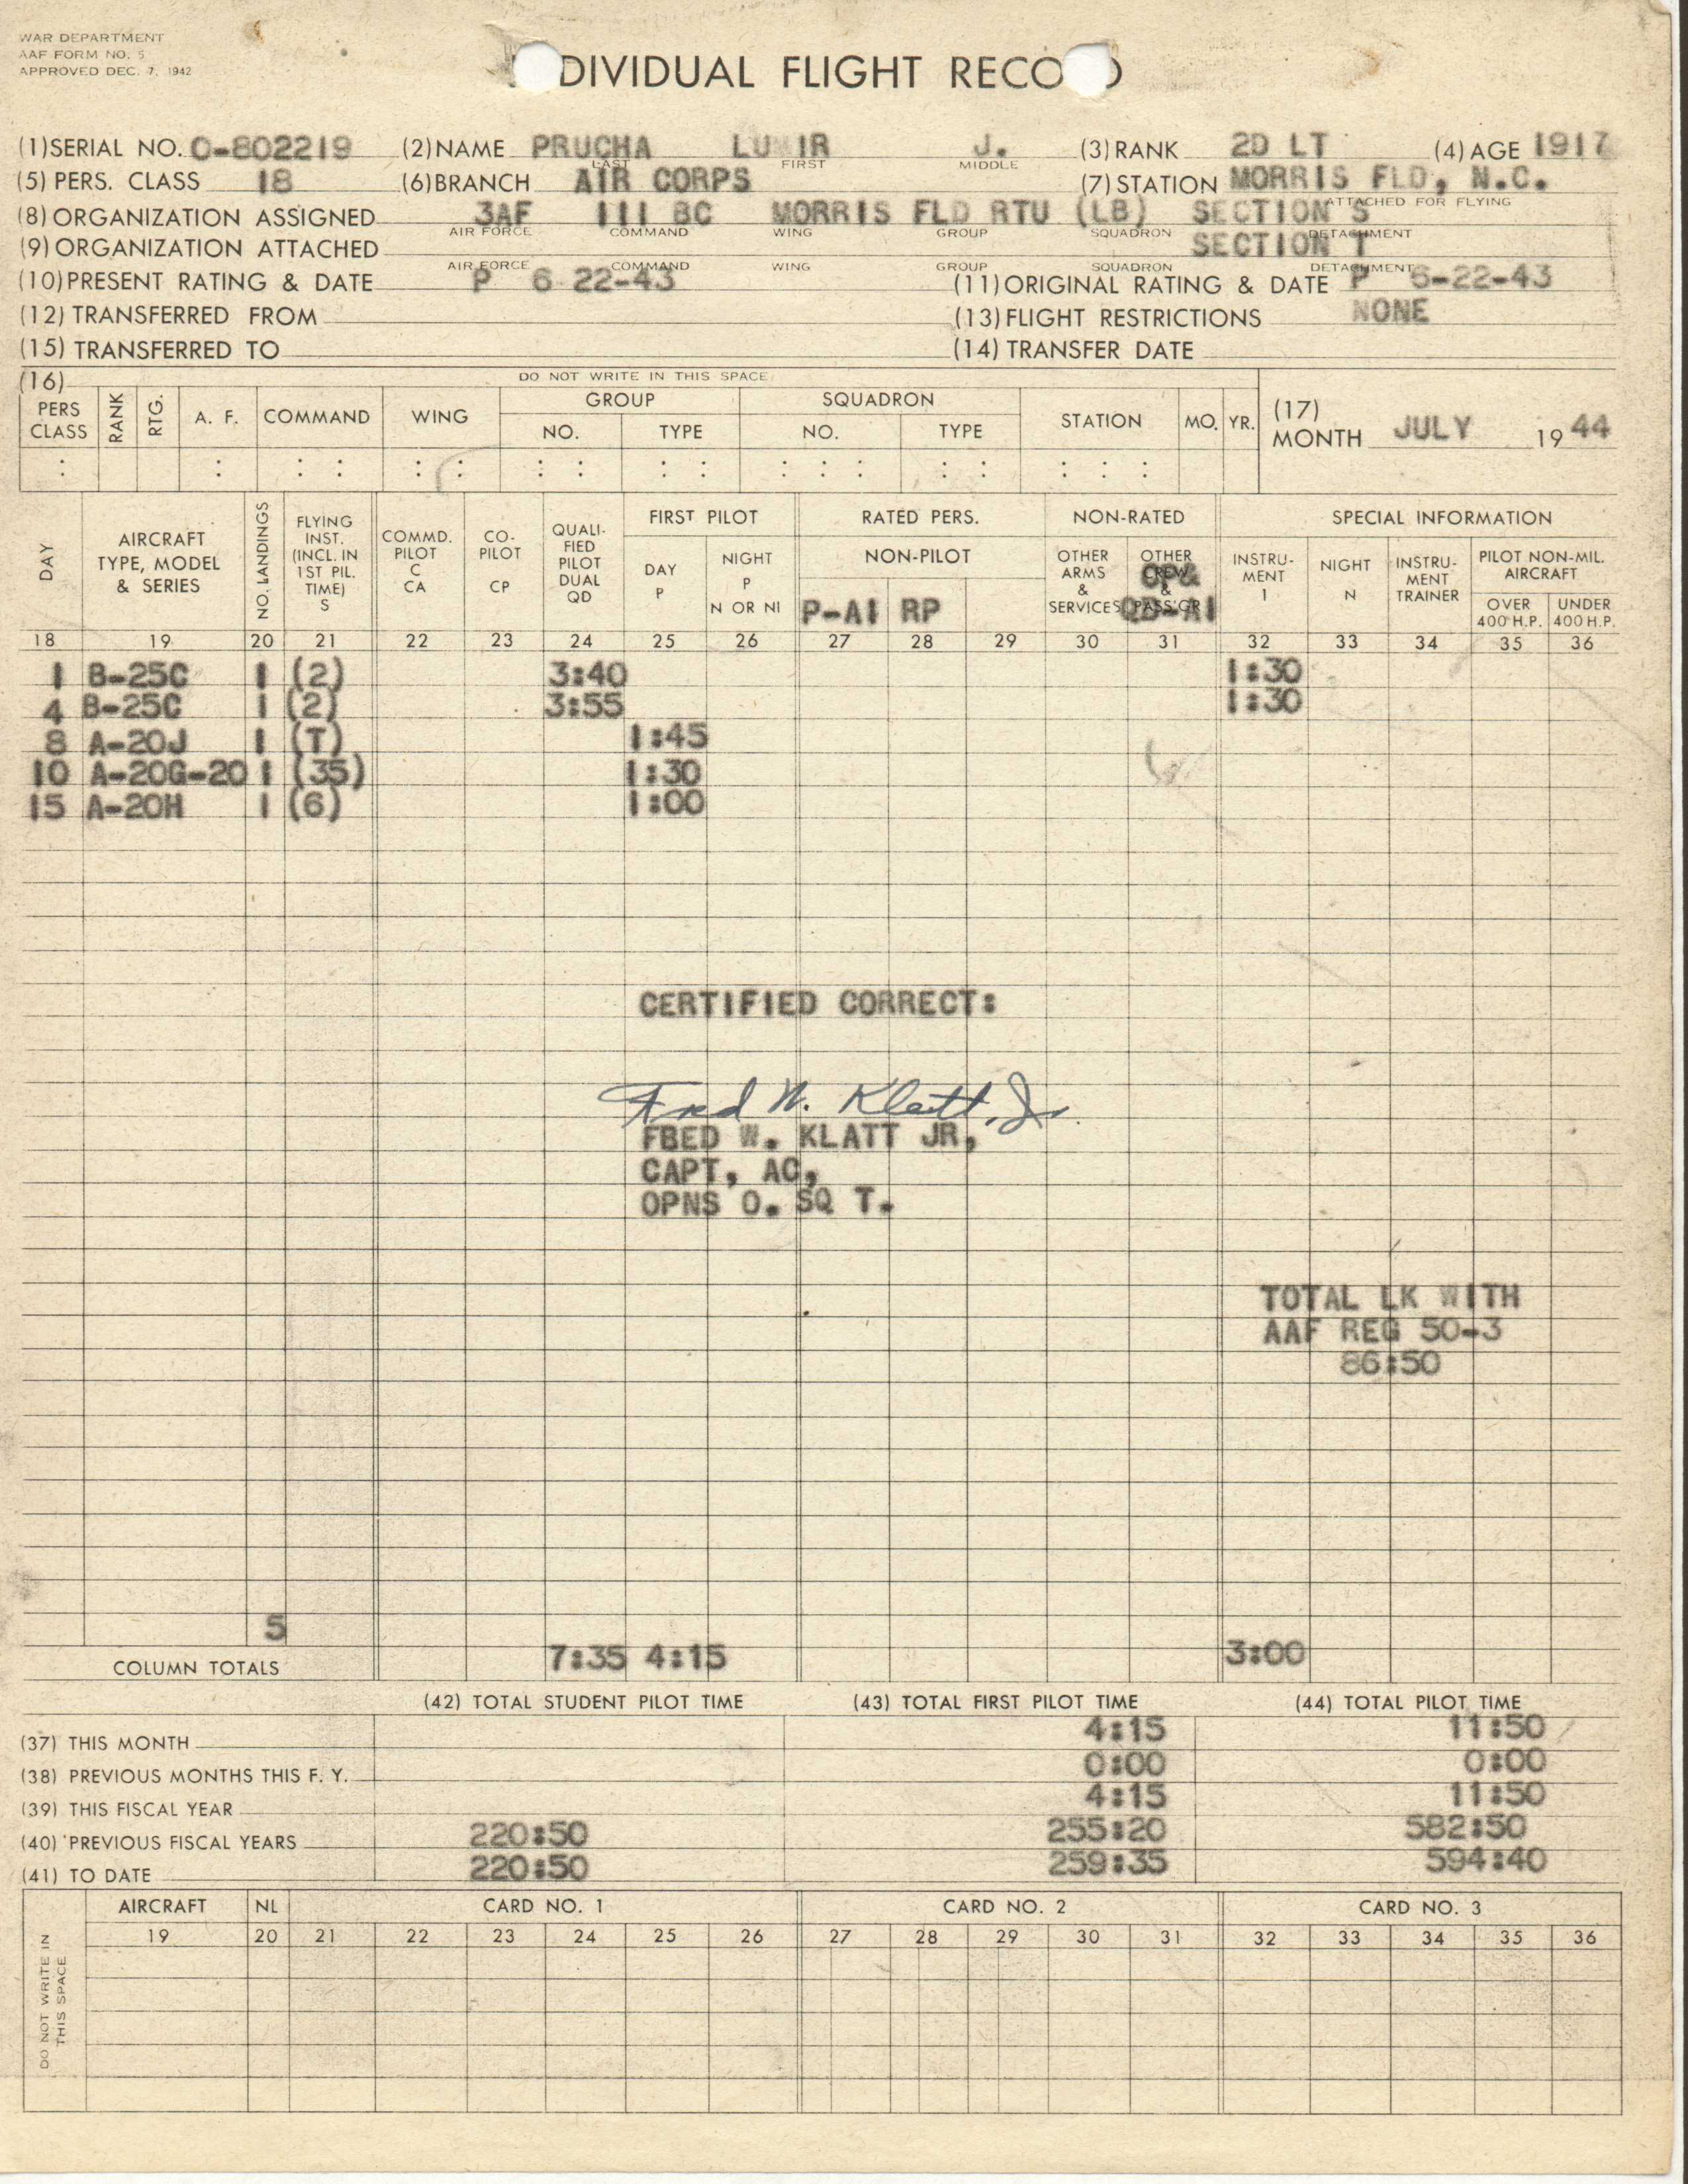 WAR DEPARTMENT
AAF FORM NO. 5
APPROVED DEC. 7, 1942
DIVIDUAL FLIGHT RECO D
(1) SERIAL NO. O-802219 (2) NAME PRUCHA LUMIR J. (3) RANK 2D LT (4) AGE 1917
LAST FIRST MIDDLE
(5) PERS. CLASS 18 (6) BRANCH AIR CORPS (7) STATION MORRIS FLD, N.C.
ATTACHED FOR FLYING
(8) ORGANIZATION ASSIGNED 3AF III BC MORRIS FLD RTU (LB) SECTION S
AIR FORCE COMMAND WING GROUP SQUADRON DETACHMENT
(9) ORGANIZATION ATTACHED SECTION T
AIR FORCE COMMAND WING GROUP SQUADRON DETACHMENT
(10) PRESENT RATING & DATE P 6 22-43 (11) ORIGINAL RATING & DATE P 6-22-43
(12) TRANSFERRED FROM (13) FLIGHT RESTRICTIONS NONE
(15) TRANSFERRED TO (14) TRANSFER DATE
(16) DO NOT WRITE IN THIS SPACE
PERS CLASS RANK RTG. A. F. COMMAND WING GROUP NO. TYPE SQUADRON NO. TYPE STATION MO. YR. (17) MONTH JULY 19 44
DAY AIRCRAFT TYPE, MODEL & SERIES NO. LANDINGS FLYING INST. (INCL. IN 1ST PIL. TIME) S COMMD. PILOT C CA CO-PILOT CP QUALI-FIED PILOT DUAL QD FIRST PILOT DAY P NIGHT P N OR NI RATED PERS. NON-PILOT P-AI RP NON-RATED OTHER ARMS & SERVICES OTHER CREW & PASS'GR CP& QD-AI SPECIAL INFORMATION INSTRU-MENT I NIGHT N INSTRU-MENT TRAINER PILOT NON-MIL. AIRCRAFT OVER 400 H.P. UNDER 400 H.P.
18 19 20 21 22 23 24 25 26 27 28 29 30 31 32 33 34 35 36
1 B-25C 1 (2) 3:40 1:30
4 B-25C 1 (2) 3:55 1:30
8 A-20J 1 (T) 1:45
10 A-20G-20 1 (35) 1:30
15 A-20H 1 (6) 1:00
CERTIFIED CORRECT:
Fred W. Klatt, Jr.
FBED W. KLATT JR,
CAPT, AC,
OPNS O. SQ T.
TOTAL LK WITH
AAF REG 50-3
86:50
5
COLUMN TOTALS 7:35 4:15 3:00
(42) TOTAL STUDENT PILOT TIME (43) TOTAL FIRST PILOT TIME (44) TOTAL PILOT TIME
(37) THIS MONTH 4:15 11:50
(38) PREVIOUS MONTHS THIS F. Y. 0:00 0:00
(39) THIS FISCAL YEAR 4:15 11:50
(40) PREVIOUS FISCAL YEARS 220:50 255:20 582:50
(41) TO DATE 220:50 259:35 594:40
AIRCRAFT NL CARD NO. 1 CARD NO. 2 CARD NO. 3
19 20 21 22 23 24 25 26 27 28 29 30 31 32 33 34 35 36
DO NOT WRITE IN THIS SPACE